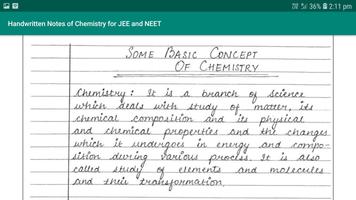 36% 2:11 pm
Handwritten Notes of Chemistry for JEE and NEET
SOME BASIC CONCEPT
OF CHEMISTRY
Chemistry: It is a branch of science
which deals with study of matter, its
chemical composition and its physical
and chemical properties and the changes
which it undergoes in energy and compo-
sition during various process. It is also
called study of elements and molecules
and their transformation.